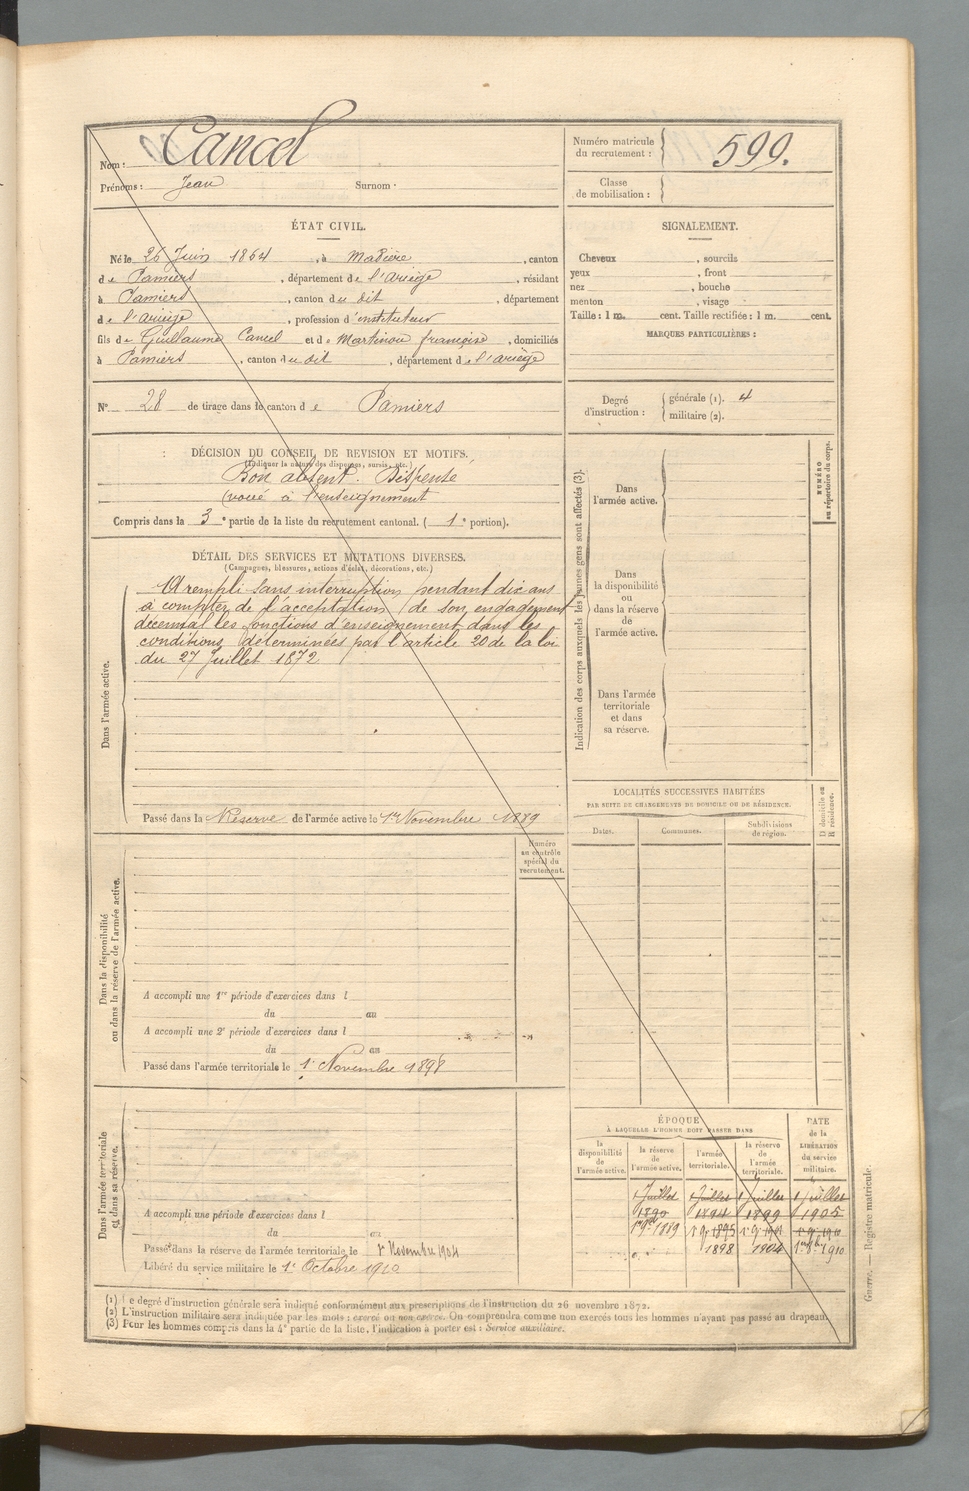 Nom : Cancel
Prénoms : Jean Surnom ·
Numéro matricule du recrutement : 599.
Classe de mobilisation :
ÉTAT CIVIL.
Né le 26 Juin 1864, à Madière, canton
de Pamiers, département de l'Ariège, résidant
à Pamiers, canton du dit, département
de l'Ariège, profession d'instituteur
fils de Guillaume Cancel et de Martinou françoise, domiciliés
à Pamiers, canton du dit, département de l'ariège
N° 28 de tirage dans le canton de Pamiers
SIGNALEMENT.
Cheveux , sourcils
yeux , front
nez , bouche
menton , visage
Taille : 1 m. cent. Taille rectifiée : 1 m. cent.
MARQUES PARTICULIÈRES :
Degré d'instruction : générale (1). 4
militaire (2).
DÉCISION DU CONSEIL DE REVISION ET MOTIFS.
(Indiquer la nature des dispenses, sursis, etc.)
Bon absent. Dispensé
(voué à l'enseignement
Compris dans la 3e partie de la liste du recrutement cantonal. (1e portion).
DÉTAIL DES SERVICES ET MUTATIONS DIVERSES.
(Campagnes, blessures, actions d'éclat, décorations, etc.)
Dans l'armée active.
A rempli sans interruption pendant dix ans
à compter de l'acceptation de son engagement
décennal les fonctions d'enseignement dans les
conditions déterminées par l'article 20 de la loi
du 27 Juillet 1872
Passé dans la Réserve de l'armée active le 1er Novembre 1889
Indication des corps auxquels les jeunes gens sont affectés (3).
NUMÉRO au répertoire du corps.
Dans l'armée active.
Dans la disponibilité ou dans la réserve de l'armée active.
Dans l'armée territoriale et dans sa réserve.
LOCALITÉS SUCCESSIVES HABITÉES
PAR SUITE DE CHANGEMENTS DE DOMICILE OU DE RÉSIDENCE.
Dates. Communes. Subdivisions de région. D domicile ou R résidence.
Dans la disponibilité ou dans la réserve de l'armée active.
Numéro au contrôle spécial du recrutement.
A accompli une 1re période d'exercices dans l
du au
A accompli une 2e période d'exercices dans l
du au
Passé dans l'armée territoriale le 1er Novembre 1898
Dans l'armée territoriale et dans sa réserve.
A accompli une période d'exercices dans l
du au
Passé dans la réserve de l'armée territoriale le 1er Novembre 1904
Libéré du service militaire le 1er Octobre 1910
ÉPOQUE
À LAQUELLE L'HOMME DOIT PASSER DANS
la disponibilité de l'armée active. la réserve de l'armée active. l'armée territoriale. la réserve de l'armée territoriale. DATE de la LIBÉRATION du service militaire.
1 Juillet 1 Juillet 1 Juillet 1 Juillet
1890 1894 1899 1905
1889 1895
1898 1904 1910
(1) Le degré d'instruction générale sera indiqué conformément aux prescriptions de l'instruction du 26 novembre 1872.
(2) L'instruction militaire sera indiquée par les mots : exercé ou non exercé. On comprendra comme non exercés tous les hommes n'ayant pas passé au drapeau.
(3) Pour les hommes compris dans la 4e partie de la liste, l'indication à porter est : Service auxiliaire.
Guerre. — Registre matricule.